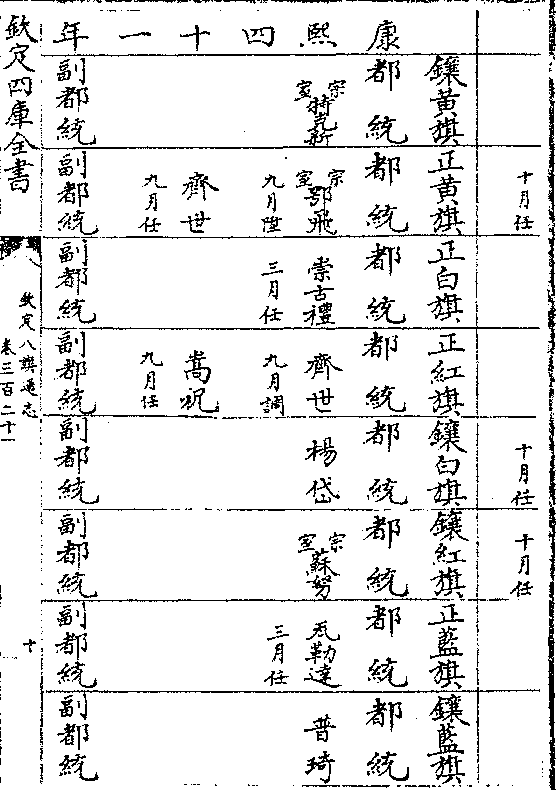 康熙四十一年
鑲黃旗
都統
宗室特克新
副都統
十月任
正黃旗
都統
宗室鄂飛
九月陞
齊世
九月任
副都統
正白旗
都統
崇古禮
三月任
副都統
正紅旗
都統
齊世
九月調
嵩祝
九月任
副都統
十月任
鑲白旗
都統
楊岱
副都統
十月任
鑲紅旗
都統
宗室蘇努
副都統
正藍旗
都統
瓦勒達
三月任
副都統
鑲藍旗
都統
普琦
副都統
欽定四庫全書
欽定八旗通志
卷三百二十一
十